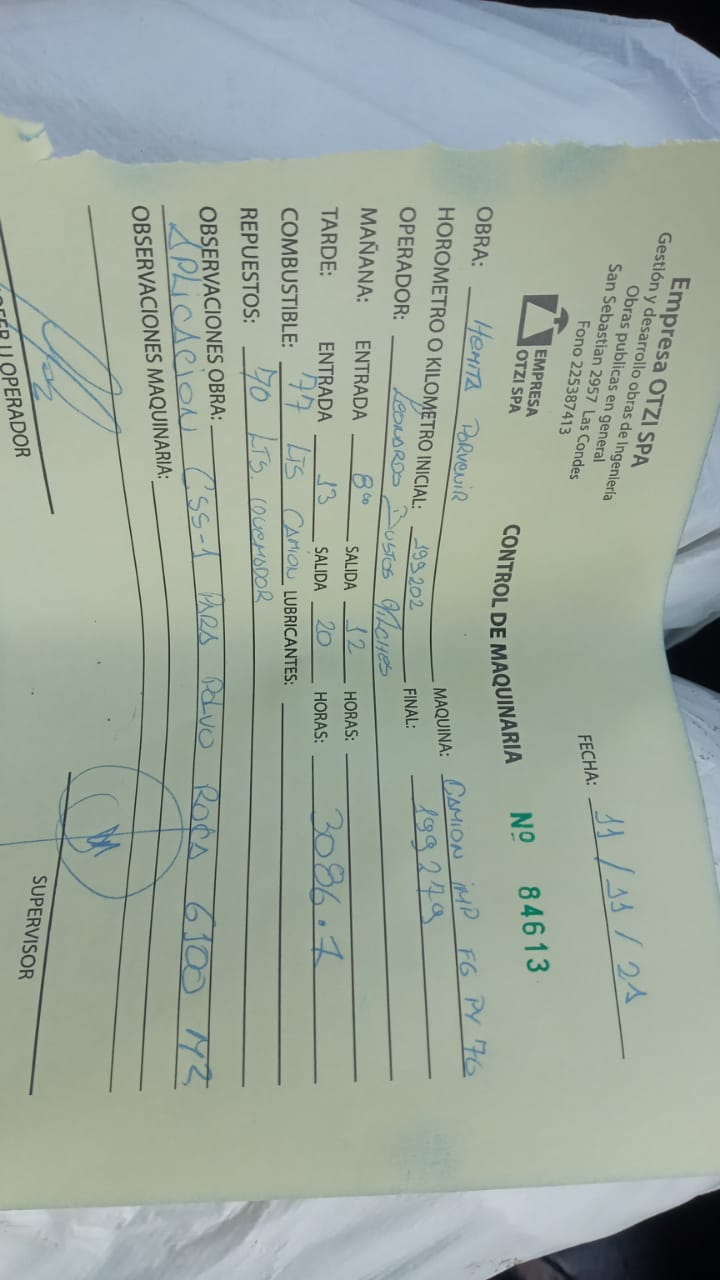 Empresa OTZI SPA
Gestión y desarrollo obras de Ingeniería
Obras publicas en general
San Sebastian 2957 Las Condes
Fono 225387413
EMPRESA
OTZI SPA
FECHA: 11 / 11 / 21
CONTROL DE MAQUINARIA Nº 84613
OBRA: HEMITA PORVENIR MAQUINA: CAMION IMP FG PY 76
HOROMETRO O KILOMETRO INICIAL: 199202 FINAL: 199279
OPERADOR: LEONARDO BUSTOS VILCHES
MAÑANA: ENTRADA 8⁰⁰ SALIDA 12 HORAS:
TARDE: ENTRADA 13 SALIDA 20 HORAS: 3086.7
COMBUSTIBLE: 77 LTS CAMION LUBRICANTES:
REPUESTOS: 70 LTS. QUEMADOR
OBSERVACIONES OBRA:
APLICACION CSS-1 PARA POLVO ROCA 6100 M2
OBSERVACIONES MAQUINARIA:
U OPERADOR
SUPERVISOR